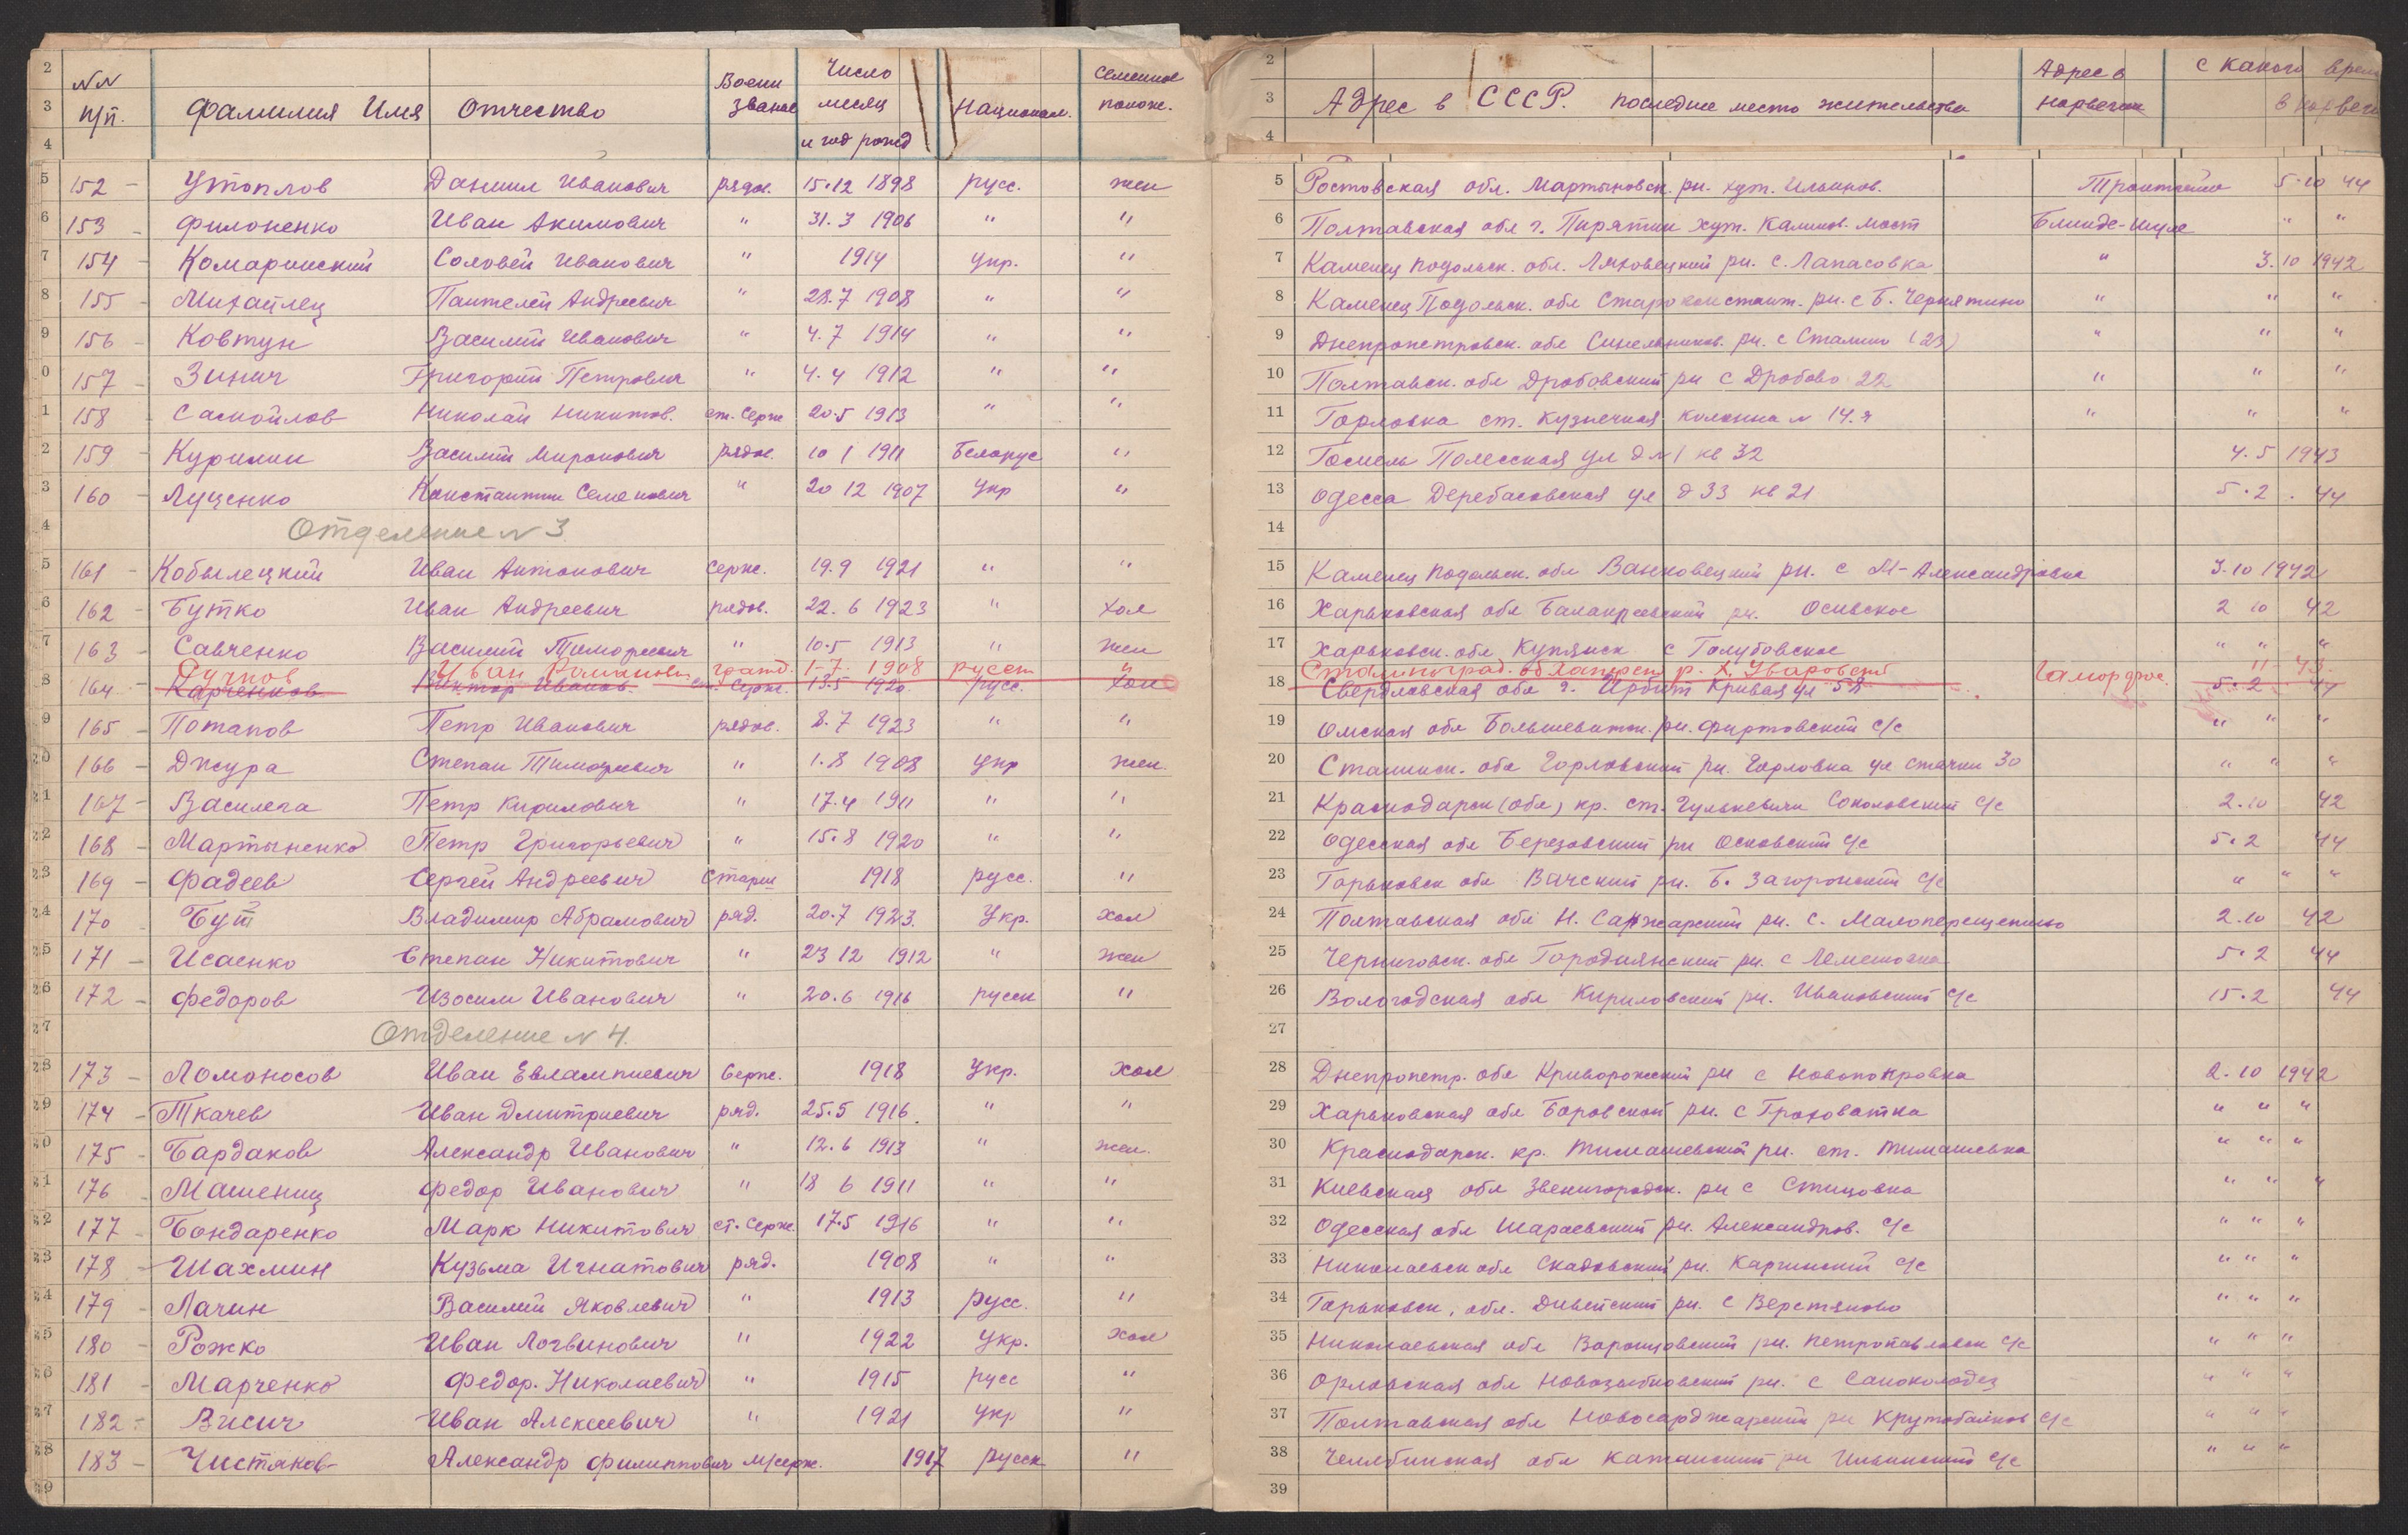 NN п/п. Фамилия Имя Отчество Воени звание Число месяц и год рожд Национал. Семейное полож. Адрес в СССР. последнее место жительства Адрес в норвегии с какого врем в норвеги
152 - Утоплов Даниил Иванович рядов. 15.12 1898 русс. жен Ростовская обл. Мартыновск. рн. хут. Ильинов. 5.10 44
153 - Филоненко Иван Акимович " 31.3 1906 " " Полтавская обл г. Пирятин хут. Калинов. мост " "
154 - Комаринский Соловей Иванович " 1914 укр. " Каменец подольск. обл. Ляховецкий рн. с. Лапасовка " 3.10 1942
155 - Михайлец Пантелей Андреевич " 28.7 1908 " " Каменец Подольск. обл Староконстант. рн. с Б. Чернятино " " "
156 - Ковтун Василий Иванович " 4.7 1914 " " Днепропетровск. обл Синельников. рн. с Сталино (23) " " "
157 - Зинич Григорий Петрович " 4.4 1912 " " Полтавск. обл Дробовский рн с Дробово 22 " " "
158 - Самойлов Николай Никитов. ст. Серж 20.5 1913 " " Горловка ст. Кузнечная колонка N 14.я " " "
159 - Курилин Василий Миронович рядов. 10 1 1911 Белорус " Гомель Полесская ул д N 1 кв 32 4.5 1943
160 - Луценко Константин Семенович " 20 12 1907 укр " Одесса Дерибасовская ул д 33 кв 21 5.2. 44
Отделение N 3
161 - Кобылецкий Иван Антонович серж. 19.9 1921 " " Каменец подольск. обл Ваньковецкий рн. с М-Александровка 3.10 1942
162 - Бутко Иван Андреевич рядов. 22.6 1923 " хол Харьковская обл Балаклеевский рн. 2 10 42
163 - Савченко Василий Тимофеевич " 10.5 1913 " жен Харьковск. обл Купянск с Голубовское " " "
Ручков Иван Романови гражд. 1-7. 1908 русск " Сталинград. об Хоперск р. х. Уваровский 11 43.
164 - Карченков Виктор Иванов. ст. Серж. 13.5 1920 русс. хол Свердловская обл г. Ирбит Кривая ул 58 5.2 44
165 - Потапов Петр Иванович рядов. 8.7 1923 " " Омская обл Большевитск. рн. Фиртовский с/с " " "
166 - Джура Степан Тимофеевич " 1.8 1908 укр жен. Сталинск. обл Горловский рн. Горловка ул стачки 30 " " "
167 - Василега Петр Кирилович " 17.4 1911 " " Краснодарск (обл) кр. ст. Гулькевичи Соколовский с/с 2.10 42
168 - Мартыненко Петр Григорьевич " 15.8 1920 " " Одесская обл Березовский рн Осковский с/с 5.2 44
169 - Фадеев Сергей Андреевич Старш 1918 русс. " Горьковск обл Вачский рн. Б. Загоронский с/с " " "
170 - Бут Владимир Абрамович ряд. 20.7 1923. Укр. хол Полтавская обл Н. Санжарский рн. с. Малоперещепино 2.10 42
171 - Исаенко Степан Никитович " 23 12 1912 " жен Черниговск. обл Городнянский рн. с Лемешовка 5.2 44
172 - Федоров Изосим Иванович " 20.6 1916 русск " Вологодская обл Кириловский рн. Ивановский с/с 15.2 44
Отделение N 4.
173 - Ломоносов Иван Евлампиевич Серж. 1918 Укр. хол Днепропетр. обл Криворожский рн с Новопокровка 2.10 1942
174 - Ткачев Иван Дмитриевич ряд. 25.5 1916. " " Харьковская обл Боровской рн. с Гроховатка " " "
175 - Бардаков Александр Иванович " 12.6 1913 " жен. Краснодарск. кр. Тимашевский рн. ст. Тимашевка " " "
176 - Машениц Федор Иванович " 18 6 1911 " " Киевская обл Звенигородск. рн с Стицовка " " "
177 - Бондаренко Марк Никитович ст. Серж. 17.5 1916 " " Одесская обл Шараевский рн. Александров. с/с " " "
178 - Шахмин Кузьма Игнатович ряд. 1908 " " Николаевск обл Скадовский рн. Каргинский с/с " " "
179 - Лачин Василий Яковлевич " 1913 русс. " Горьковск. обл. Дивейский рн. с Верстяново " " "
180 - Рожко Иван Логвинович " 1922 Укр. хол Николаевская обл Воронцовский рн. Петропавловск с/с " " "
181 - Марченко Федор. Николаевич " 1915 русс " Орловская обл Новозыбковский рн. с Саноколодез " " "
182 - Висич Иван Алексеевич " 1921 укр " Полтавская обл Новосарджарский рн Крутобалков с/с " " "
183 - Чистяков Александр Филиппович м/серж. 1917 русск " Челябинская обл Катайский рн Ильинский с/с " " "